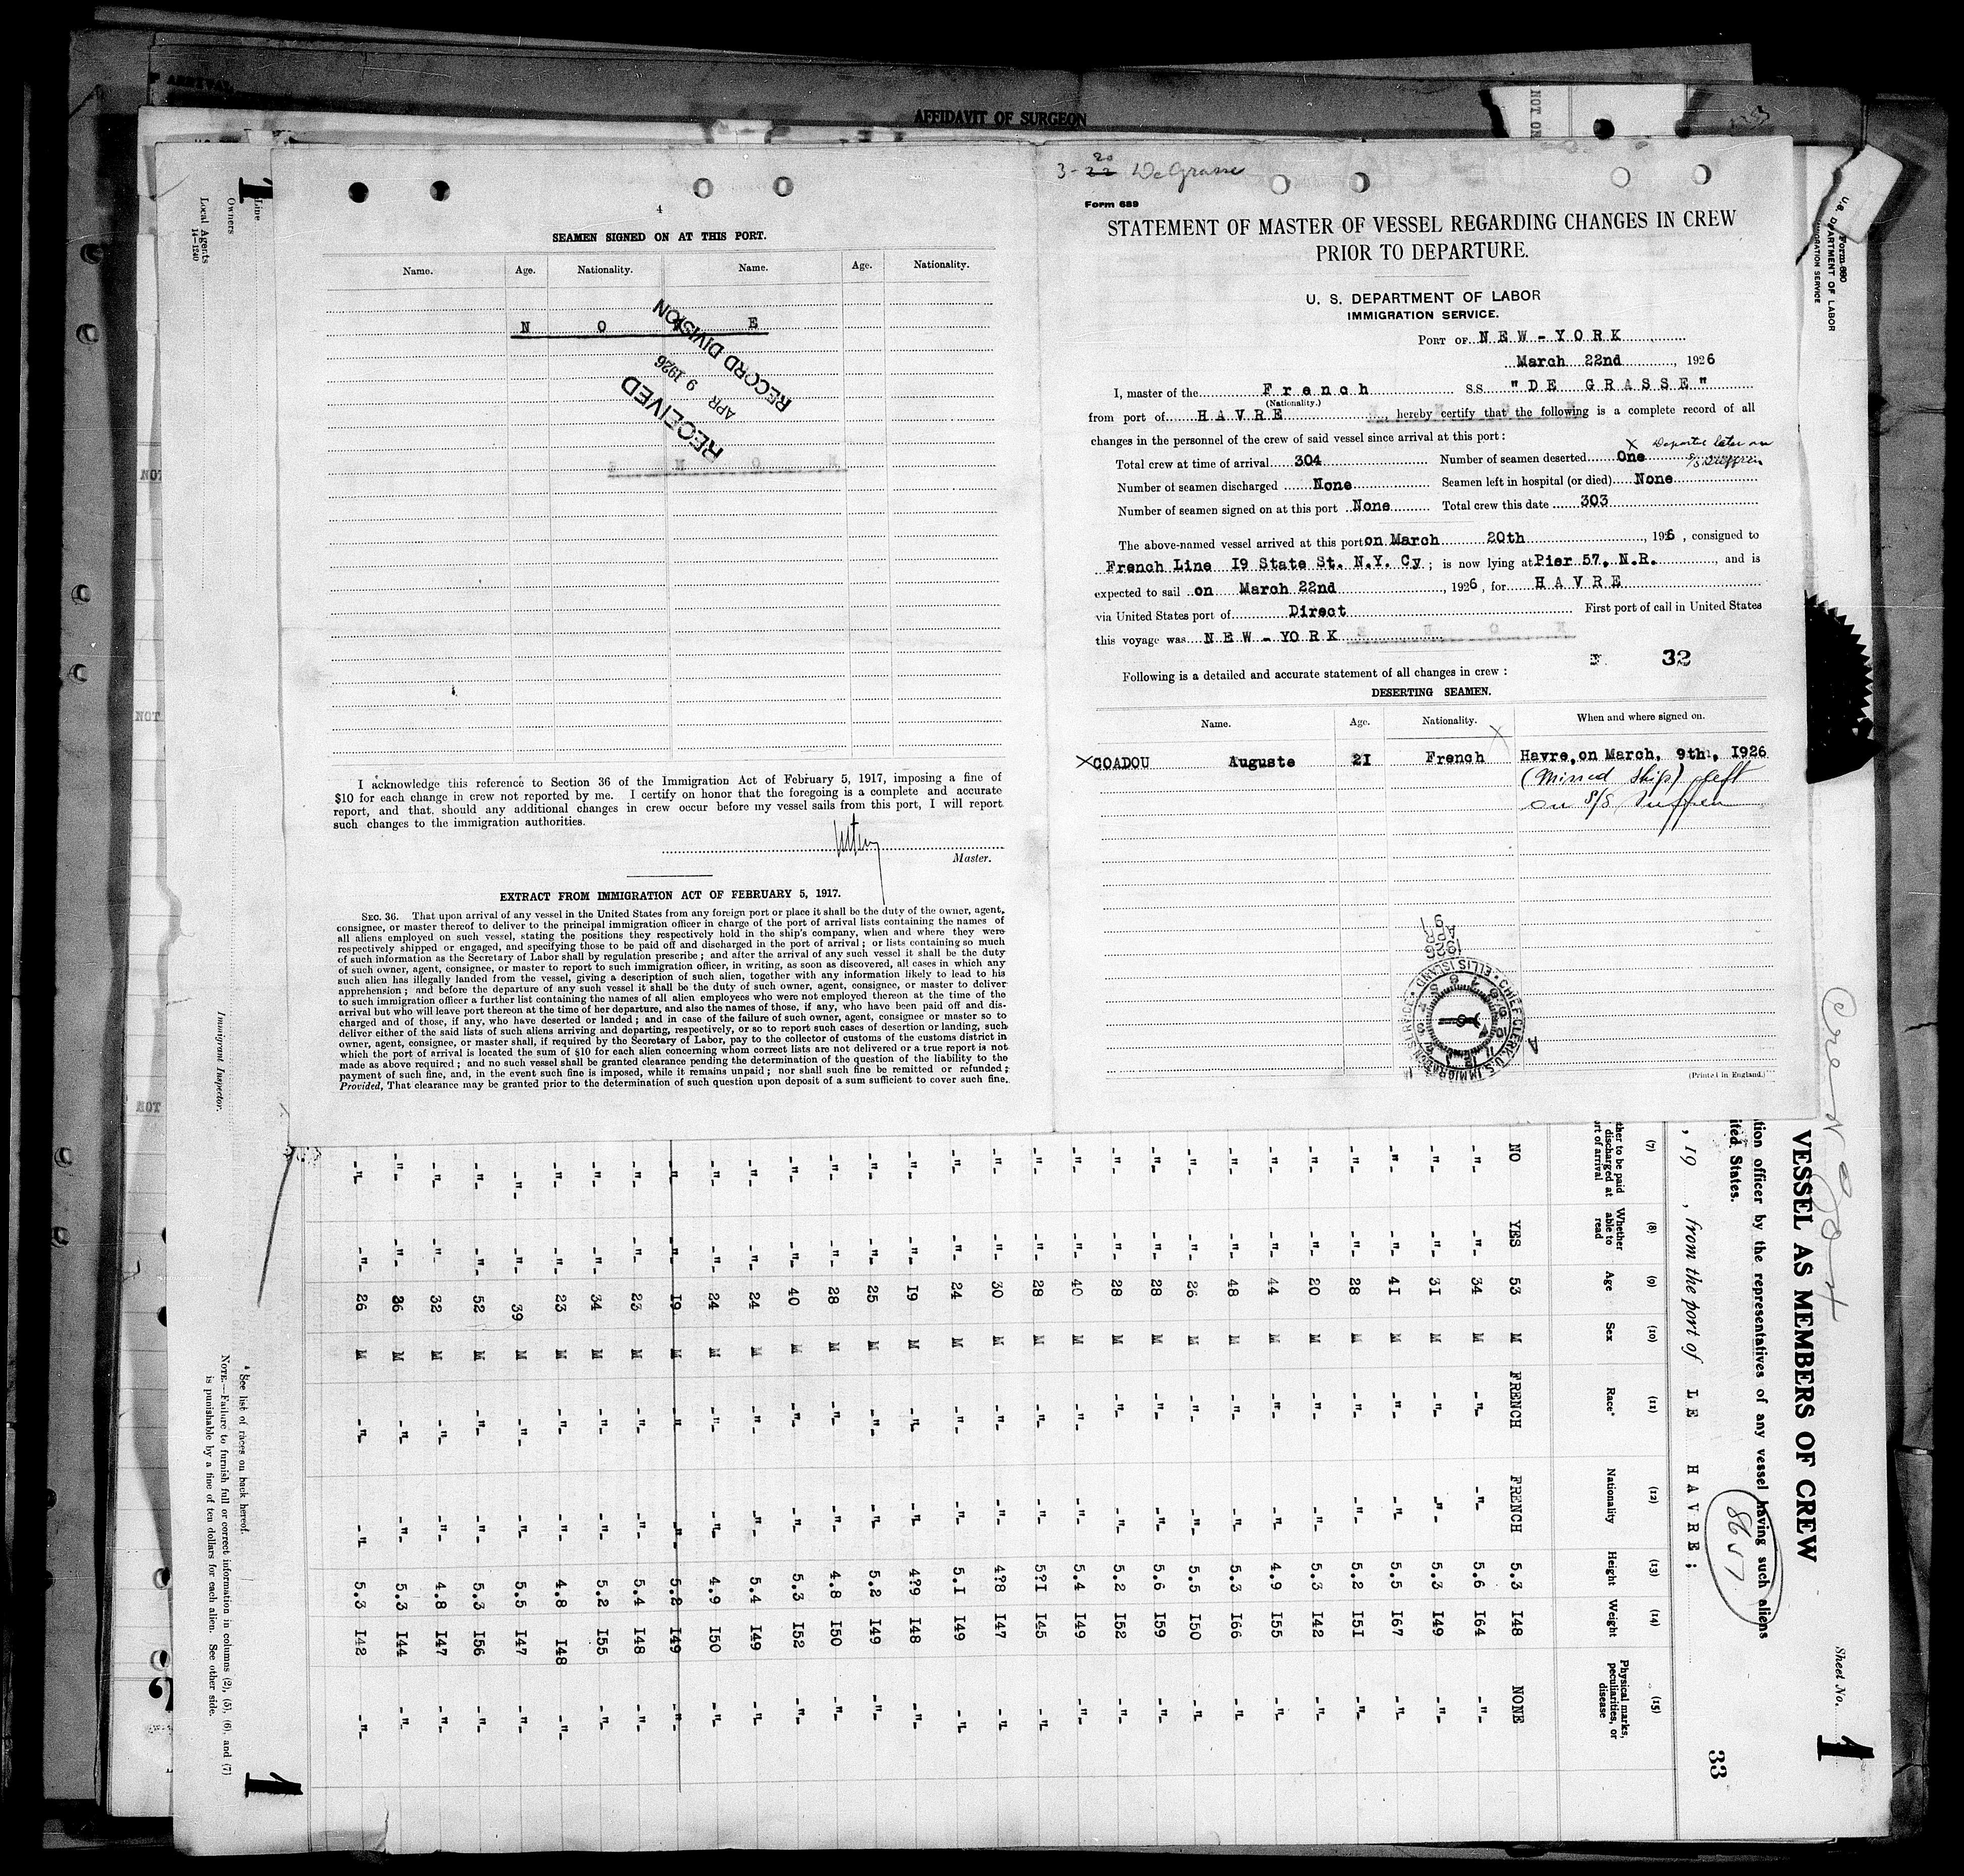 AFFIDAVIT OF SURGEON
NOT ON
4
SEAMEN SIGNED ON AT THIS PORT.
Name. Age. Nationality. Name. Age. Nationality.
N O N E
RECEIVED
APR 9 1926
RECORD DIVISION
I acknowledge this reference to Section 36 of the Immigration Act of February 5, 1917, imposing a fine of
$10 for each change in crew not reported by me. I certify on honor that the foregoing is a complete and accurate
report, and that, should any additional changes in crew occur before my vessel sails from this port, I will report
such changes to the immigration authorities.
Master.
EXTRACT FROM IMMIGRATION ACT OF FEBRUARY 5, 1917.
SEC. 36. That upon arrival of any vessel in the United States from any foreign port or place it shall be the duty of the owner, agent,
consignee, or master thereof to deliver to the principal immigration officer in charge of the port of arrival lists containing the names of
all aliens employed on such vessel, stating the positions they respectively hold in the ship's company, when and where they were
respectively shipped or engaged, and specifying those to be paid off and discharged in the port of arrival; or lists containing so much
of such information as the Secretary of Labor shall by regulation prescribe; and after the arrival of any such vessel it shall be the duty
of such owner, agent, consignee, or master to report to such immigration officer, in writing, as soon as discovered, all cases in which any
such alien has illegally landed from the vessel, giving a description of such alien, together with any information likely to lead to his
apprehension; and before the departure of any such vessel it shall be the duty of such owner, agent, consignee, or master to deliver
to such immigration officer a further list containing the names of all alien employees who were not employed thereon at the time of the
arrival but who will leave port thereon at the time of her departure, and also the names of those, if any, who have been paid off and dis-
charged and of those, if any, who have deserted or landed; and in case of the failure of such owner, agent, consignee or master so to
deliver either of the said lists of such aliens arriving and departing, respectively, or so to report such cases of desertion or landing, such
owner, agent, consignee, or master shall, if required by the Secretary of Labor, pay to the collector of customs of the customs district in
which the port of arrival is located the sum of $10 for each alien concerning whom correct lists are not delivered or a true report is not
made as above required; and no such vessel shall be granted clearance pending the determination of the question of the liability to the
payment of such fine, and, in the event such fine is imposed, while it remains unpaid; nor shall such fine be remitted or refunded;
Provided, That clearance may be granted prior to the determination of such question upon deposit of a sum sufficient to cover such fine.
3-22 20 De Grasse
Form 689
STATEMENT OF MASTER OF VESSEL REGARDING CHANGES IN CREW
PRIOR TO DEPARTURE.
U. S. DEPARTMENT OF LABOR
IMMIGRATION SERVICE.
PORT OF NEW-YORK
March 22nd, 1926
I, master of the French S.S. "DE GRASSE"
(Nationality.)
from port of HAVRE hereby certify that the following is a complete record of all
changes in the personnel of the crew of said vessel since arrival at this port:
X Departed later on
Total crew at time of arrival 304 Number of seamen deserted One S/S Suffren
Number of seamen discharged None Seamen left in hospital (or died) None
Number of seamen signed on at this port None Total crew this date 303
The above-named vessel arrived at this port on March 20th, 1926, consigned to
French Line I9 State St. N.Y. Cy; is now lying at Pier 57, N.R., and is
expected to sail on March 22nd, 1926, for HAVRE
via United States port of Direct First port of call in United States
this voyage was NEW-YORK
32
Following is a detailed and accurate statement of all changes in crew:
DESERTING SEAMEN.
Name. Age. Nationality. When and where signed on.
X COADOU Auguste 2I French Havre, on March, 9th, I926
(Missed ship) left
on S/S Suffren
CHIEF CLERK U.S. IMMIGRATION SERVICE ELLIS ISLAND
1926 APR 9
(Printed in England.)
Form 680
U.S. DEPARTMENT OF LABOR
IMMIGRATION SERVICE
Sheet No. 1
33
VESSEL AS MEMBERS OF CREW
tion officer by the representatives of any vessel having such aliens
ited States.
, 19 , from the port of LE HAVRE;
(7) (8) (9) (10) (11) (12) (13) (14) (15)
ther to be paid discharged at rt of arrival
Whether able to read
Age
Sex
Race*
Nationality
Height
Weight
Physical marks, peculiarities, or disease
NO YES 53 M FRENCH FRENCH 5.3 I48 NONE
-"- -"- 34 M -"- -"- 5.6 I64 -"-
-"- -"- 3I M -"- -"- 5.3 I49 -"-
-"- -"- 4I M -"- -"- 5.5 I67 -"-
-"- -"- 28 M -"- -"- 5.2 I5I -"-
-"- -"- 20 M -"- -"- 5.3 I42 -"-
-"- -"- 44 M -"- -"- 4.9 I55 -"-
-"- -"- 48 M -"- -"- 5.3 I66 -"-
-"- -"- 26 M -"- -"- 5.5 I50 -"-
-"- -"- 28 M -"- -"- 5.6 I59 -"-
-"- -"- 28 M -"- -"- 5.2 I52 -"-
-"- -"- 40 M -"- -"- 5.4 I49 -"-
-"- -"- 28 M -"- -"- 5?I I45 -"-
-"- -"- 30 M -"- -"- 4?8 I47 -"-
-"- -"- 24 M -"- -"- 5.I I49 -"-
-"- -"- I9 M -"- -"- 4?9 I48 -"-
-"- -"- 25 M -"- -"- 5.2 I49 -"-
-"- -"- 28 M -"- -"- 4.8 I50 -"-
-"- -"- 40 M -"- -"- 5.3 I52 -"-
-"- -"- 24 M -"- -"- 5.4 I49 -"-
-"- -"- 24 M -"- -"- 4.9 I50 -"-
-"- -"- I9 M -"- -"- 5.2 I49 -"-
-"- -"- 23 M -"- -"- 5.4 I48 -"-
-"- -"- 34 M -"- -"- 5.2 I55 -"-
-"- -"- 23 M -"- -"- 4.8 I48 -"-
-"- -"- 39 M -"- -"- 5.5 I47 -"-
-"- -"- 52 M -"- -"- 5.3 I56 -"-
-"- -"- 32 M -"- -"- 4.8 I47 -"-
-"- -"- 36 M -"- -"- 5.3 I44 -"-
-"- -"- 26 M -"- -"- 5.3 I42 -"-
* See list of races on back hereof.
NOTE.—Failure to furnish full or correct information in columns (2), (5), (6), and (7)
is punishable by a fine of ten dollars for each alien. See other side.
Immigrant Inspector.
Line
Owners
Local Agents
14—1240
1
1
NOT
NOT
NOT